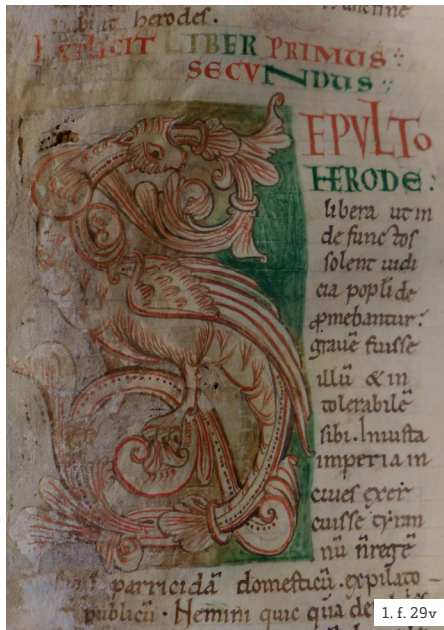 herodes.
EXPLICIT LIBER PRIMUS
SECUNDUS
EPULTO
HERODE
libera ut in
defunctos
solent iudi
cia popli de
ꝓmebantur:
grauē fuisse
illū & in
tolerabilē
sibi. Iniusta
imperia in
ciues exer
cuisse tyran
nū n̄ regē
parricidā domesticū. expilato
publicū. Nemini quic quā
1. f. 29v